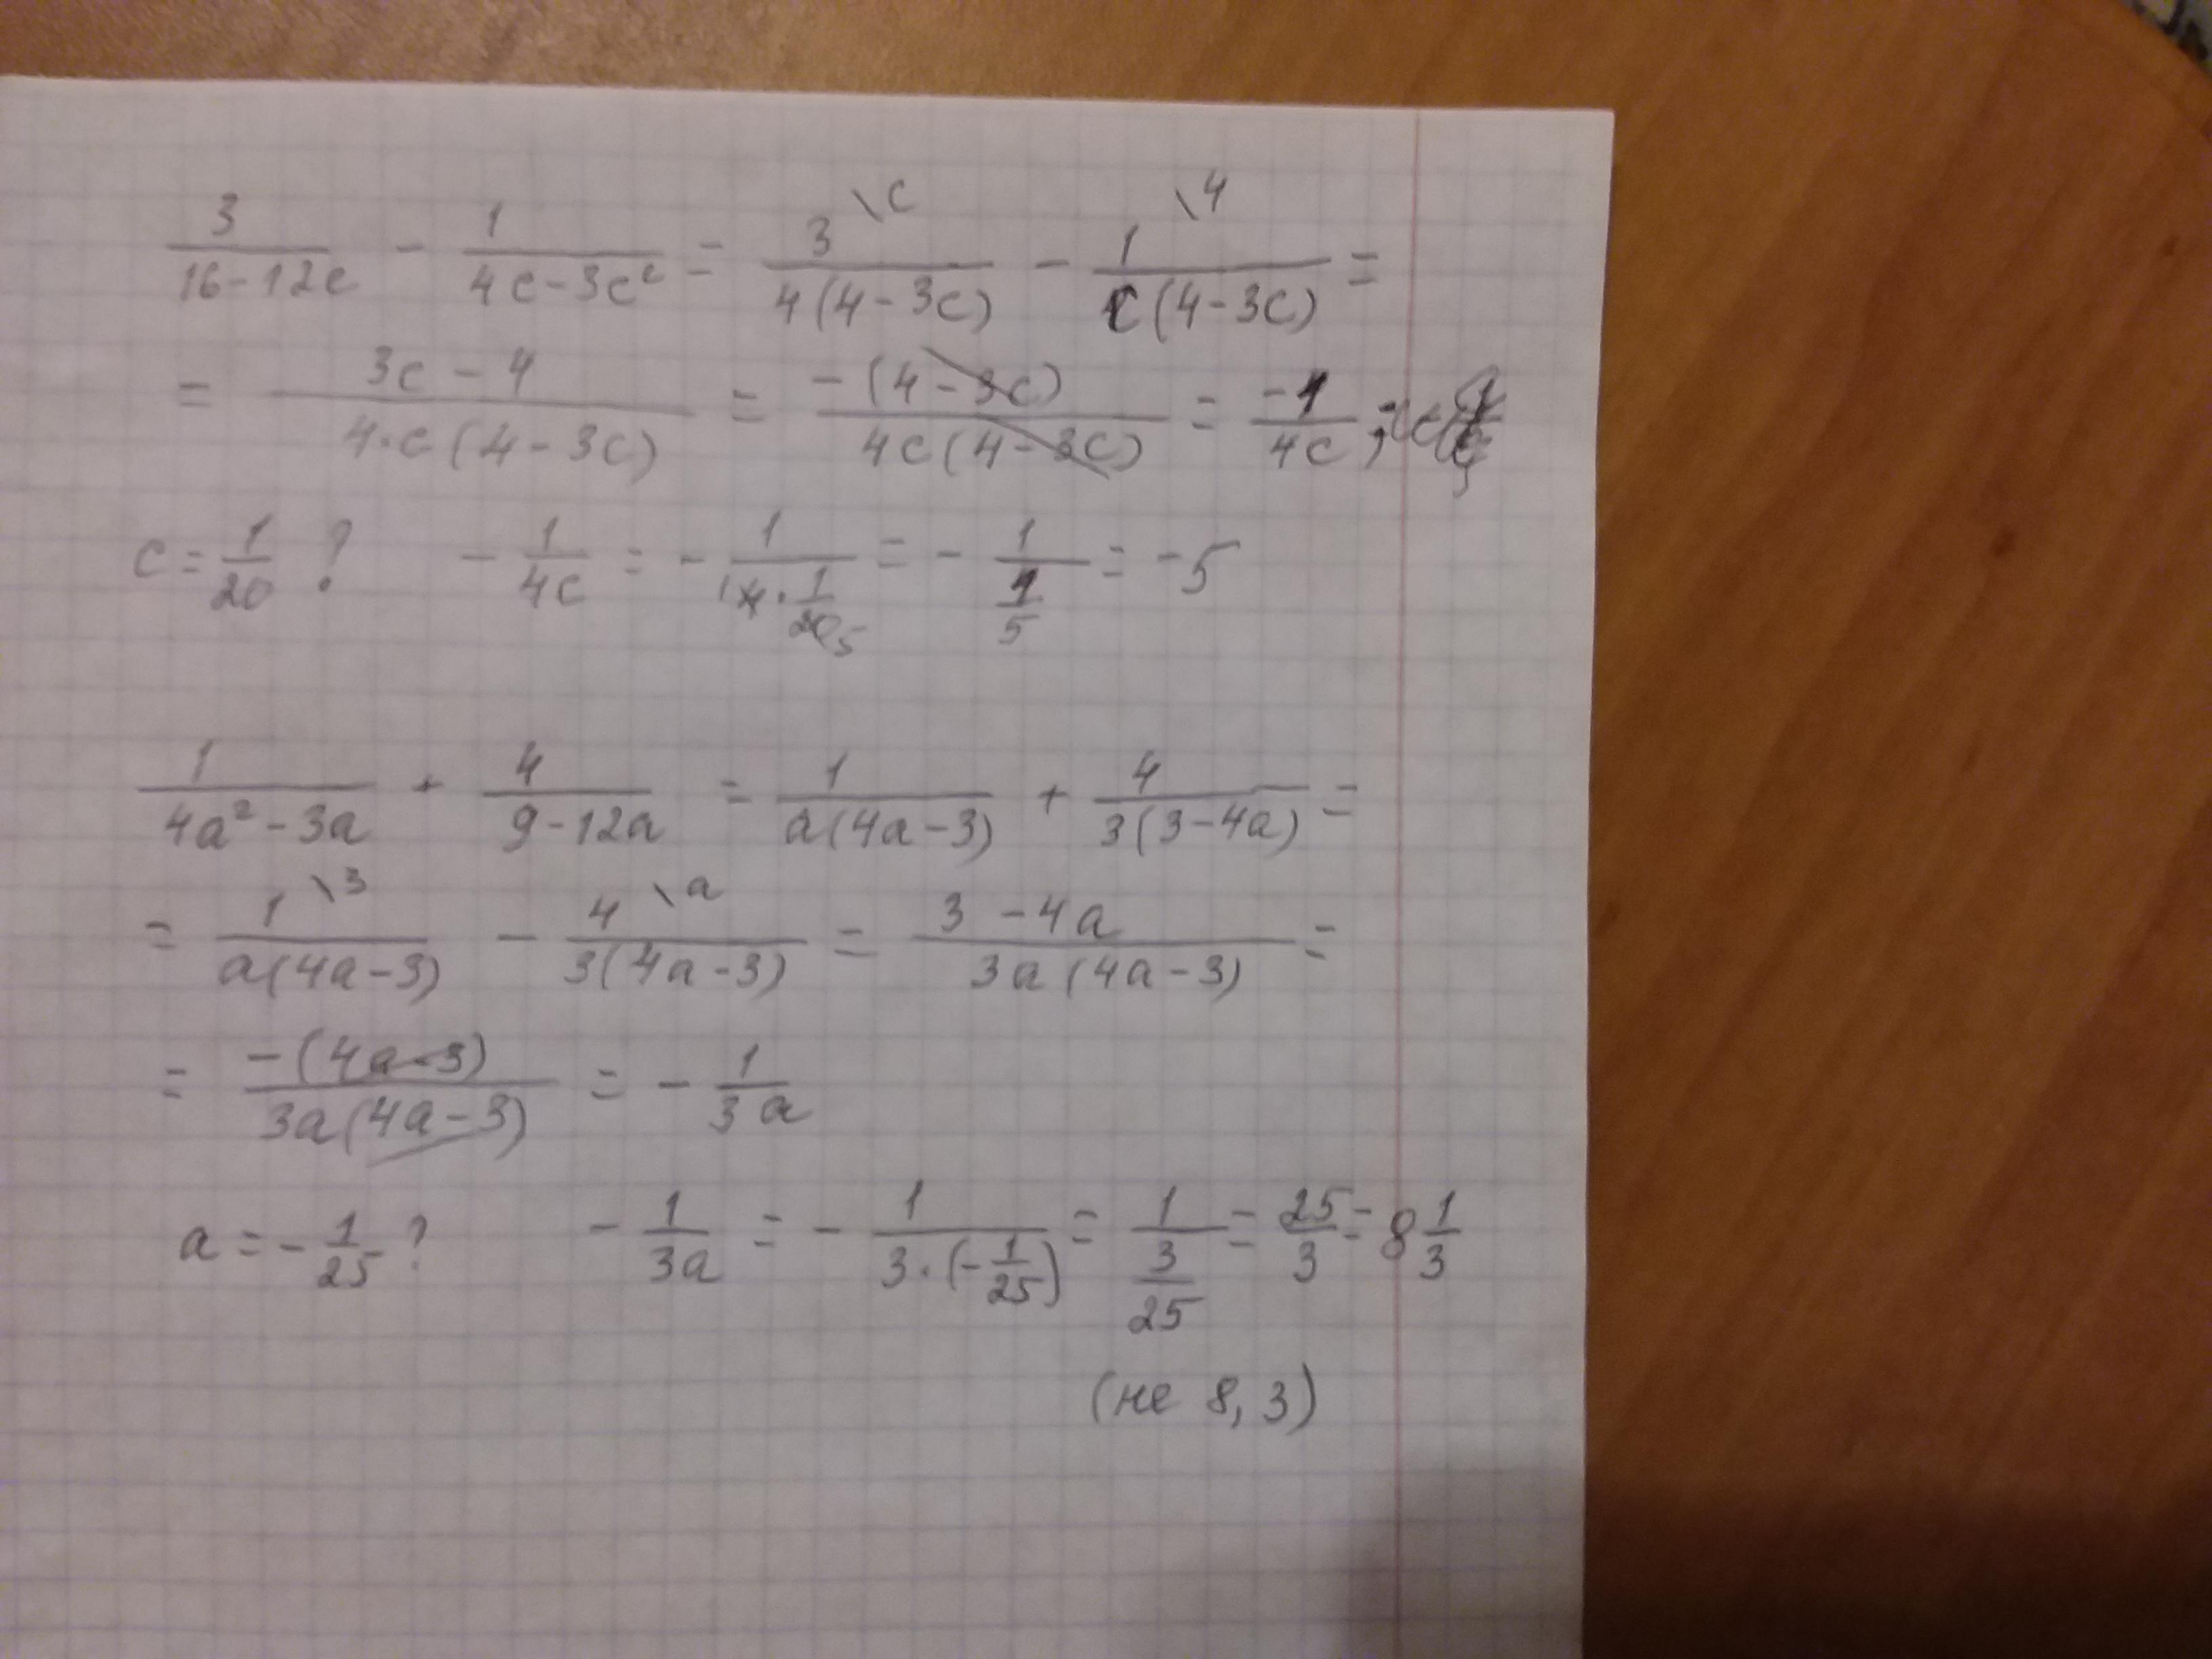 3/(16-12c) - 1/(4c-3c²) = 3\c/(4(4-3c)) - 1\4/(c(4-3c)) =
= (3c-4)/(4·c(4-3c)) = -(4-3c)/(4c(4-3c)) = -1/(4c);
c = 1/20 ? - 1/(4c) = - 1/(4·1/20) = - 1/(1/5) = -5
1/(4a²-3a) + 4/(9-12a) = 1/(a(4a-3)) + 4/(3(3-4a)) =
= 1\3/(a(4a-3)) - 4\a/(3(4a-3)) = (3-4a)/(3a(4a-3)) =
= -(4a-3)/(3a(4a-3)) = - 1/(3a)
a = - 1/25 ? - 1/(3a) = - 1/(3·(-1/25)) = 1/(3/25) = 25/3 = 8 1/3
(не 8,3)